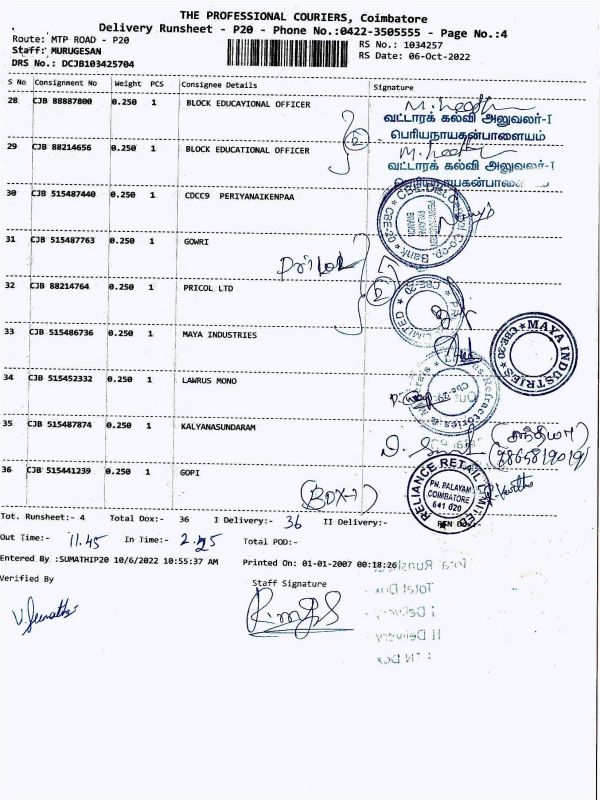 THE PROFESSIONAL COURIERS, Coimbatore
Delivery Runsheet - P20 - Phone No.:0422-3505555 - Page No.:4
Route: MTP ROAD - P20
RS No.: 1034257
Staff: MURUGESAN
RS Date: 06-Oct-2022
DRS No.: DCJB103425704
S No Consignment No Weight PCS Consignee Details Signature
28 CJB 88887800 0.250 1 BLOCK EDUCAYIONAL OFFICER
வட்டாரக் கல்வி அலுவலர்-I
பெரியநாயகன்பாளையம்
29 CJB 88214656 0.250 1 BLOCK EDUCATIONAL OFFICER
வட்டாரக் கல்வி அலுவலர்-I
பெரியநாயகன்பாளை
2
30 CJB 515487440 0.250 1 CDCC9 PERIYANAIKENPAA
31 CJB 515487763 0.250 1 GOWRI
32 CJB 88214764 0.250 1 PRICOL LTD
2
33 CJB 515486736 0.250 1 MAYA INDUSTRIES
MAYA INDUSTRIES
CBE-20
34 CJB 515452332 0.250 1 LAWRUS MONO
35 CJB 515487874 0.250 1 KALYANASUNDARAM
36 CJB 515441239 0.250 1 GOPI
RELIANCE RETAIL LIMITED
PN. PALAYAM
COIMBATORE
641 020
Tot. Runsheet:- 4 Total Dox:- 36 I Delivery:- 36 II Delivery:-
Out Time:- 11.45 In Time:- Total POD:-
Entered By :SUMATHIP20 10/6/2022 10:55:37 AM Printed On: 01-01-2007 00:18:26
Verified By Staff Signature